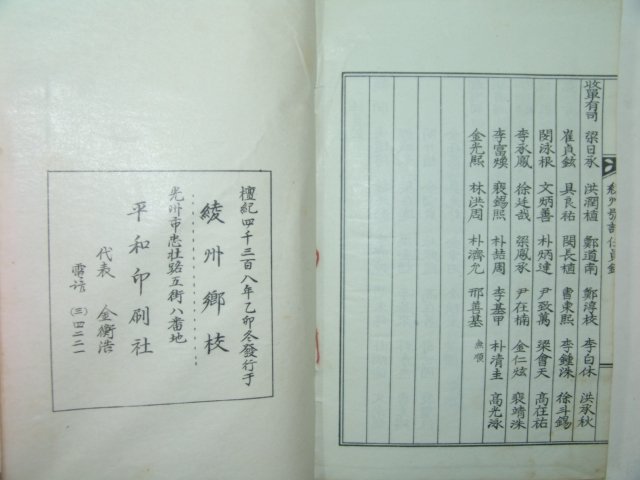 掌單有司 梁日承 洪潤植 鄭道南 鄭淳校 李白休 洪承秋
崔貞鉉 具良祐 閔長植 曺東熙 李鍾洙 徐斗錫
閔泳根 文炳善 朴炳達 尹致萬 梁會天 高在祐
李承鳳 徐廷哉 梁鳳承 尹在楠 金仁炫 裵靖洙
李富煥 裵錫熙 朴喆周 李基甲 朴清圭 高光泳
金光熙 林洪周 朴濟允 邢善基 無順
檀紀四千三百八年乙卯冬發行于
綾州鄕校
光州市忠壯路五街八番地
平和印刷社
代表 金衡浩
電話 (三)四二二一